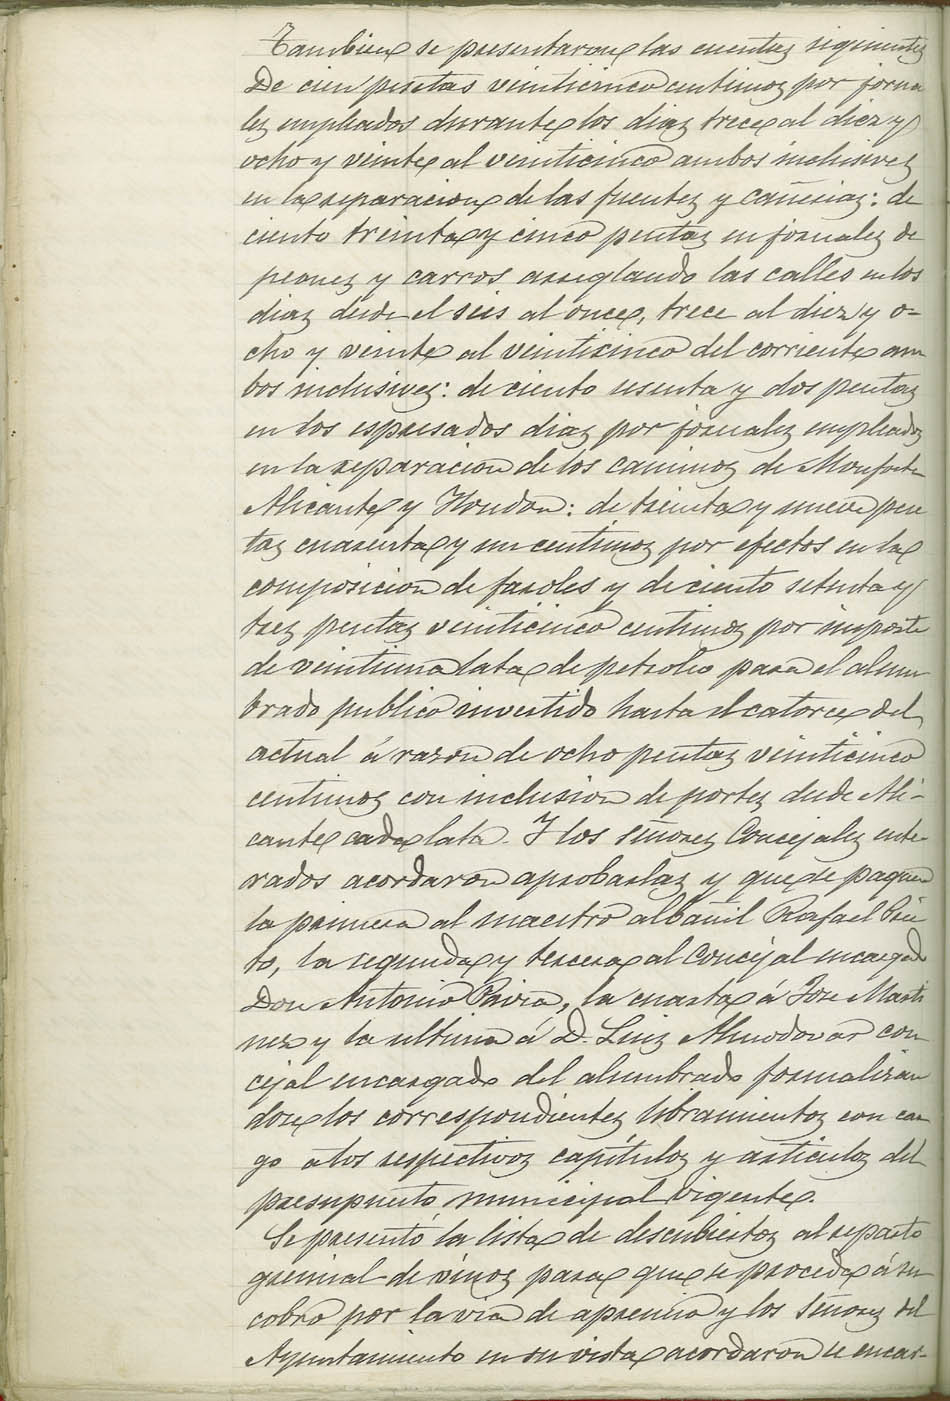 Tambien se presentaron las cuentas siguientes
De cien pesetas veinticinco centimos por jorna
les empleados durante los dias trece al diez y
ocho y veinte al veinticinco ambos inclusives
en la reparacion de las fuentes y cañerias: de
ciento treinta y cinco pesetas en jornales de
peones y carros arreglando las calles en los
dias desde el seis al once, trece al diez y o=
cho y veinte al veinticinco del corriente am
bos inclusives: de ciento sesenta y dos pesetas
en los espresados dias por jornales empleados
en la reparacion de los caminos de Monforte
Alicante y Hondon: de treinta y nueve pese
tas cuarenta y un centimos por efectos en la
composicion de faroles y de ciento setenta y
tres pesetas veinticinco centimos por importe
de veintiuna lata de petroleo para el alum
brado publico invertido hasta el catorce del
actual á razon de ocho pesetas veinticinco
centimos con inclusion de portes desde Ali-
cante cada lata. Y los Señores Concejales ente-
rados acordaron aprobarlas y que se paguen
la primera al maestro albañil Rafael Prie
to, la segunda y tercera al Concejal encargado
Don Antonio , la cuarta á Jose Marti
nez y la ultima á D. Luiz Almodovar con
cejal encargado del alumbrado formalizan
dose los correspondientes libramientos con car
go a los respectivos capítulos y articulos del
presupuesto municipal vigente.
Se presentó la lista de descubiertos al reparto
gremial de vinos para que se proceda á su
cobro por la via de apremio y los Señores del
Ayuntamiento en su vista acordaron se encar-